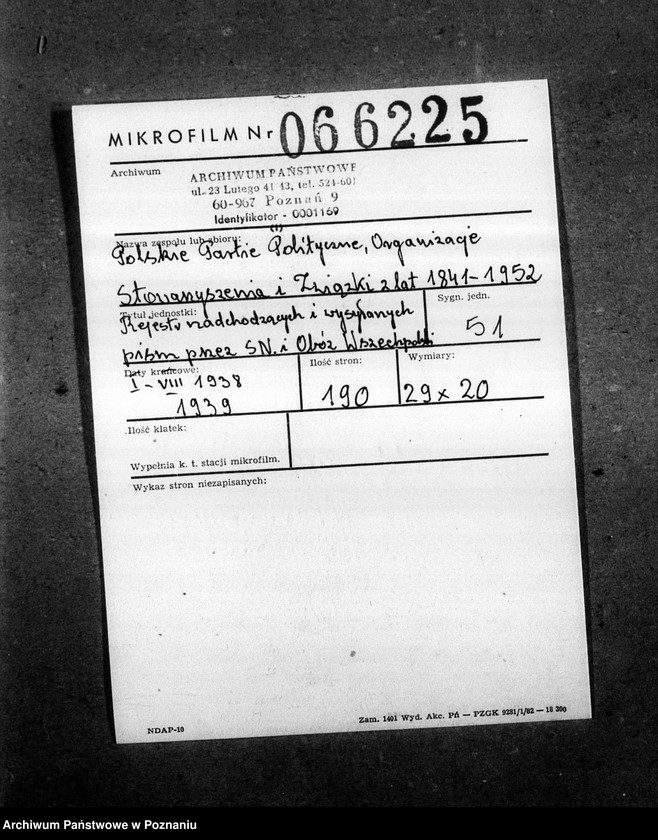 MIKROFILM Nr 066225
Archiwum
ARCHIWUM PAŃSTWOWE
ul. 23 Lutego 41/43, tel. 524-601
60-967 Poznań 9
Identyfikator - 0001169
Nazwa zespołu lub zbioru:
Polskie Partie Polityczne, Organizacje
Stowarzyszenia i Związki z lat 1841-1952
Tytuł jednostki:
Rejestr nadchodzących i wysyłanych
pism przez SN. i Obóz Wszechpolski
Sygn. jedn.
51
Daty krańcowe:
I-VIII 1938
1939
Ilość stron:
190
Wymiary:
29 x 20
Ilość klatek:
Wypełnia k. t. stacji mikrofilm.
Wykaz stron niezapisanych:
NDAP-10
Zam. 1401 Wyd. Akc. Pń — PZGK 9281/1/82 — 18 300
Archiwum Państwowe w Poznaniu